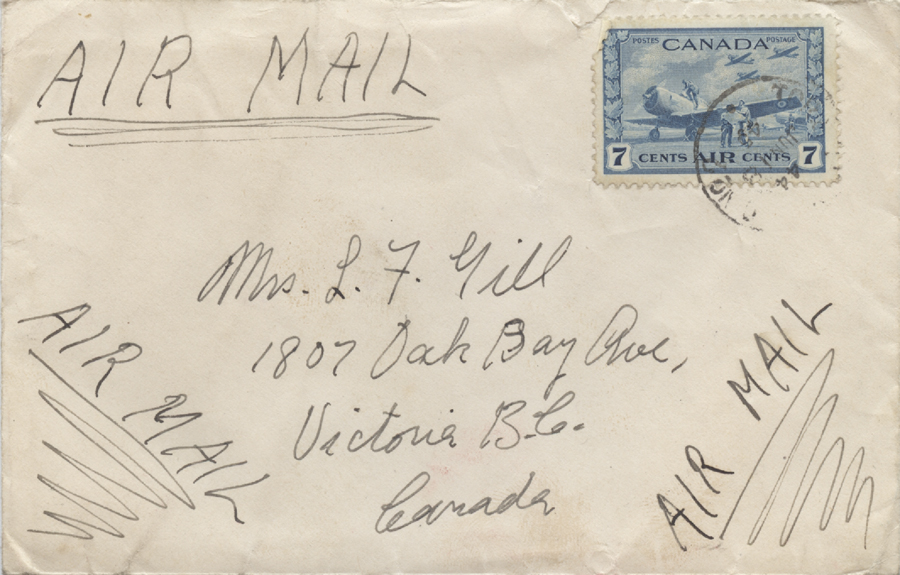 AIR MAIL
POSTES CANADA POSTAGE
7 CENTS AIR CENTS 7
Mrs. L. F. Gill
1807 Oak Bay Ave,
Victoria B.C.
Canada
AIR MAIL
AIR MAIL